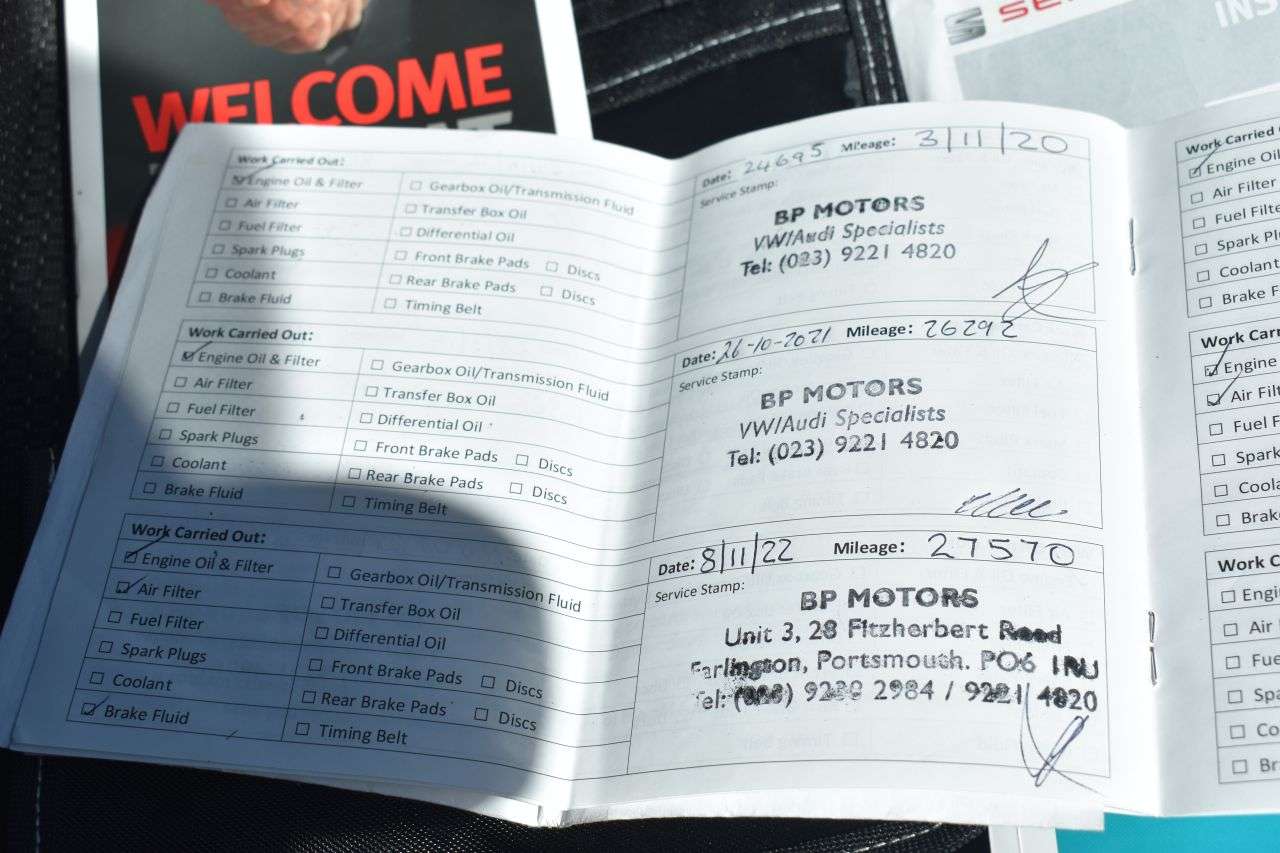 WELCOME
SE
INS
Work Carried Out:
☑ Engine Oil & Filter ☐ Gearbox Oil/Transmission Fluid
☐ Air Filter ☐ Transfer Box Oil
☐ Fuel Filter ☐ Differential Oil
☐ Spark Plugs ☐ Front Brake Pads ☐ Discs
☐ Coolant ☐ Rear Brake Pads ☐ Discs
☐ Brake Fluid ☐ Timing Belt
Date: 24695 Mileage: 3/11/20
Service Stamp:
BP MOTORS
VW/Audi Specialists
Tel: (023) 9221 4820
Work Carried Out:
☑ Engine Oil & Filter ☐ Gearbox Oil/Transmission Fluid
☐ Air Filter ☐ Transfer Box Oil
☐ Fuel Filter ☐ Differential Oil
☐ Spark Plugs ☐ Front Brake Pads ☐ Discs
☐ Coolant ☐ Rear Brake Pads ☐ Discs
☐ Brake Fluid ☐ Timing Belt
Date: 26-10-2021 Mileage: 26292
Service Stamp:
BP MOTORS
VW/Audi Specialists
Tel: (023) 9221 4820
Work Carried Out:
☑ Engine Oil & Filter ☐ Gearbox Oil/Transmission Fluid
☑ Air Filter ☐ Transfer Box Oil
☐ Fuel Filter ☐ Differential Oil
☐ Spark Plugs ☐ Front Brake Pads ☐ Discs
☐ Coolant ☐ Rear Brake Pads ☐ Discs
☑ Brake Fluid ☐ Timing Belt
Date: 8/11/22 Mileage: 27570
Service Stamp:
BP MOTORS
Unit 3, 28 Fitzherbert Road
Farlington, Portsmouth. PO6 1RU
Tel: 2984 / 9221 4820
Work Carried
☑ Engine Oil
☐ Air Filter
☐ Fuel Filter
☐ Spark Pl
☐ Coolant
☐ Brake F
Work Carri
☑ Engine
☑ Air Fil
☐ Fuel F
☐ Spark
☐ Coola
☐ Brake
Work C
☐ Engi
☐ Air
☐ Fue
☐ Spa
☐ Co
☐ Br